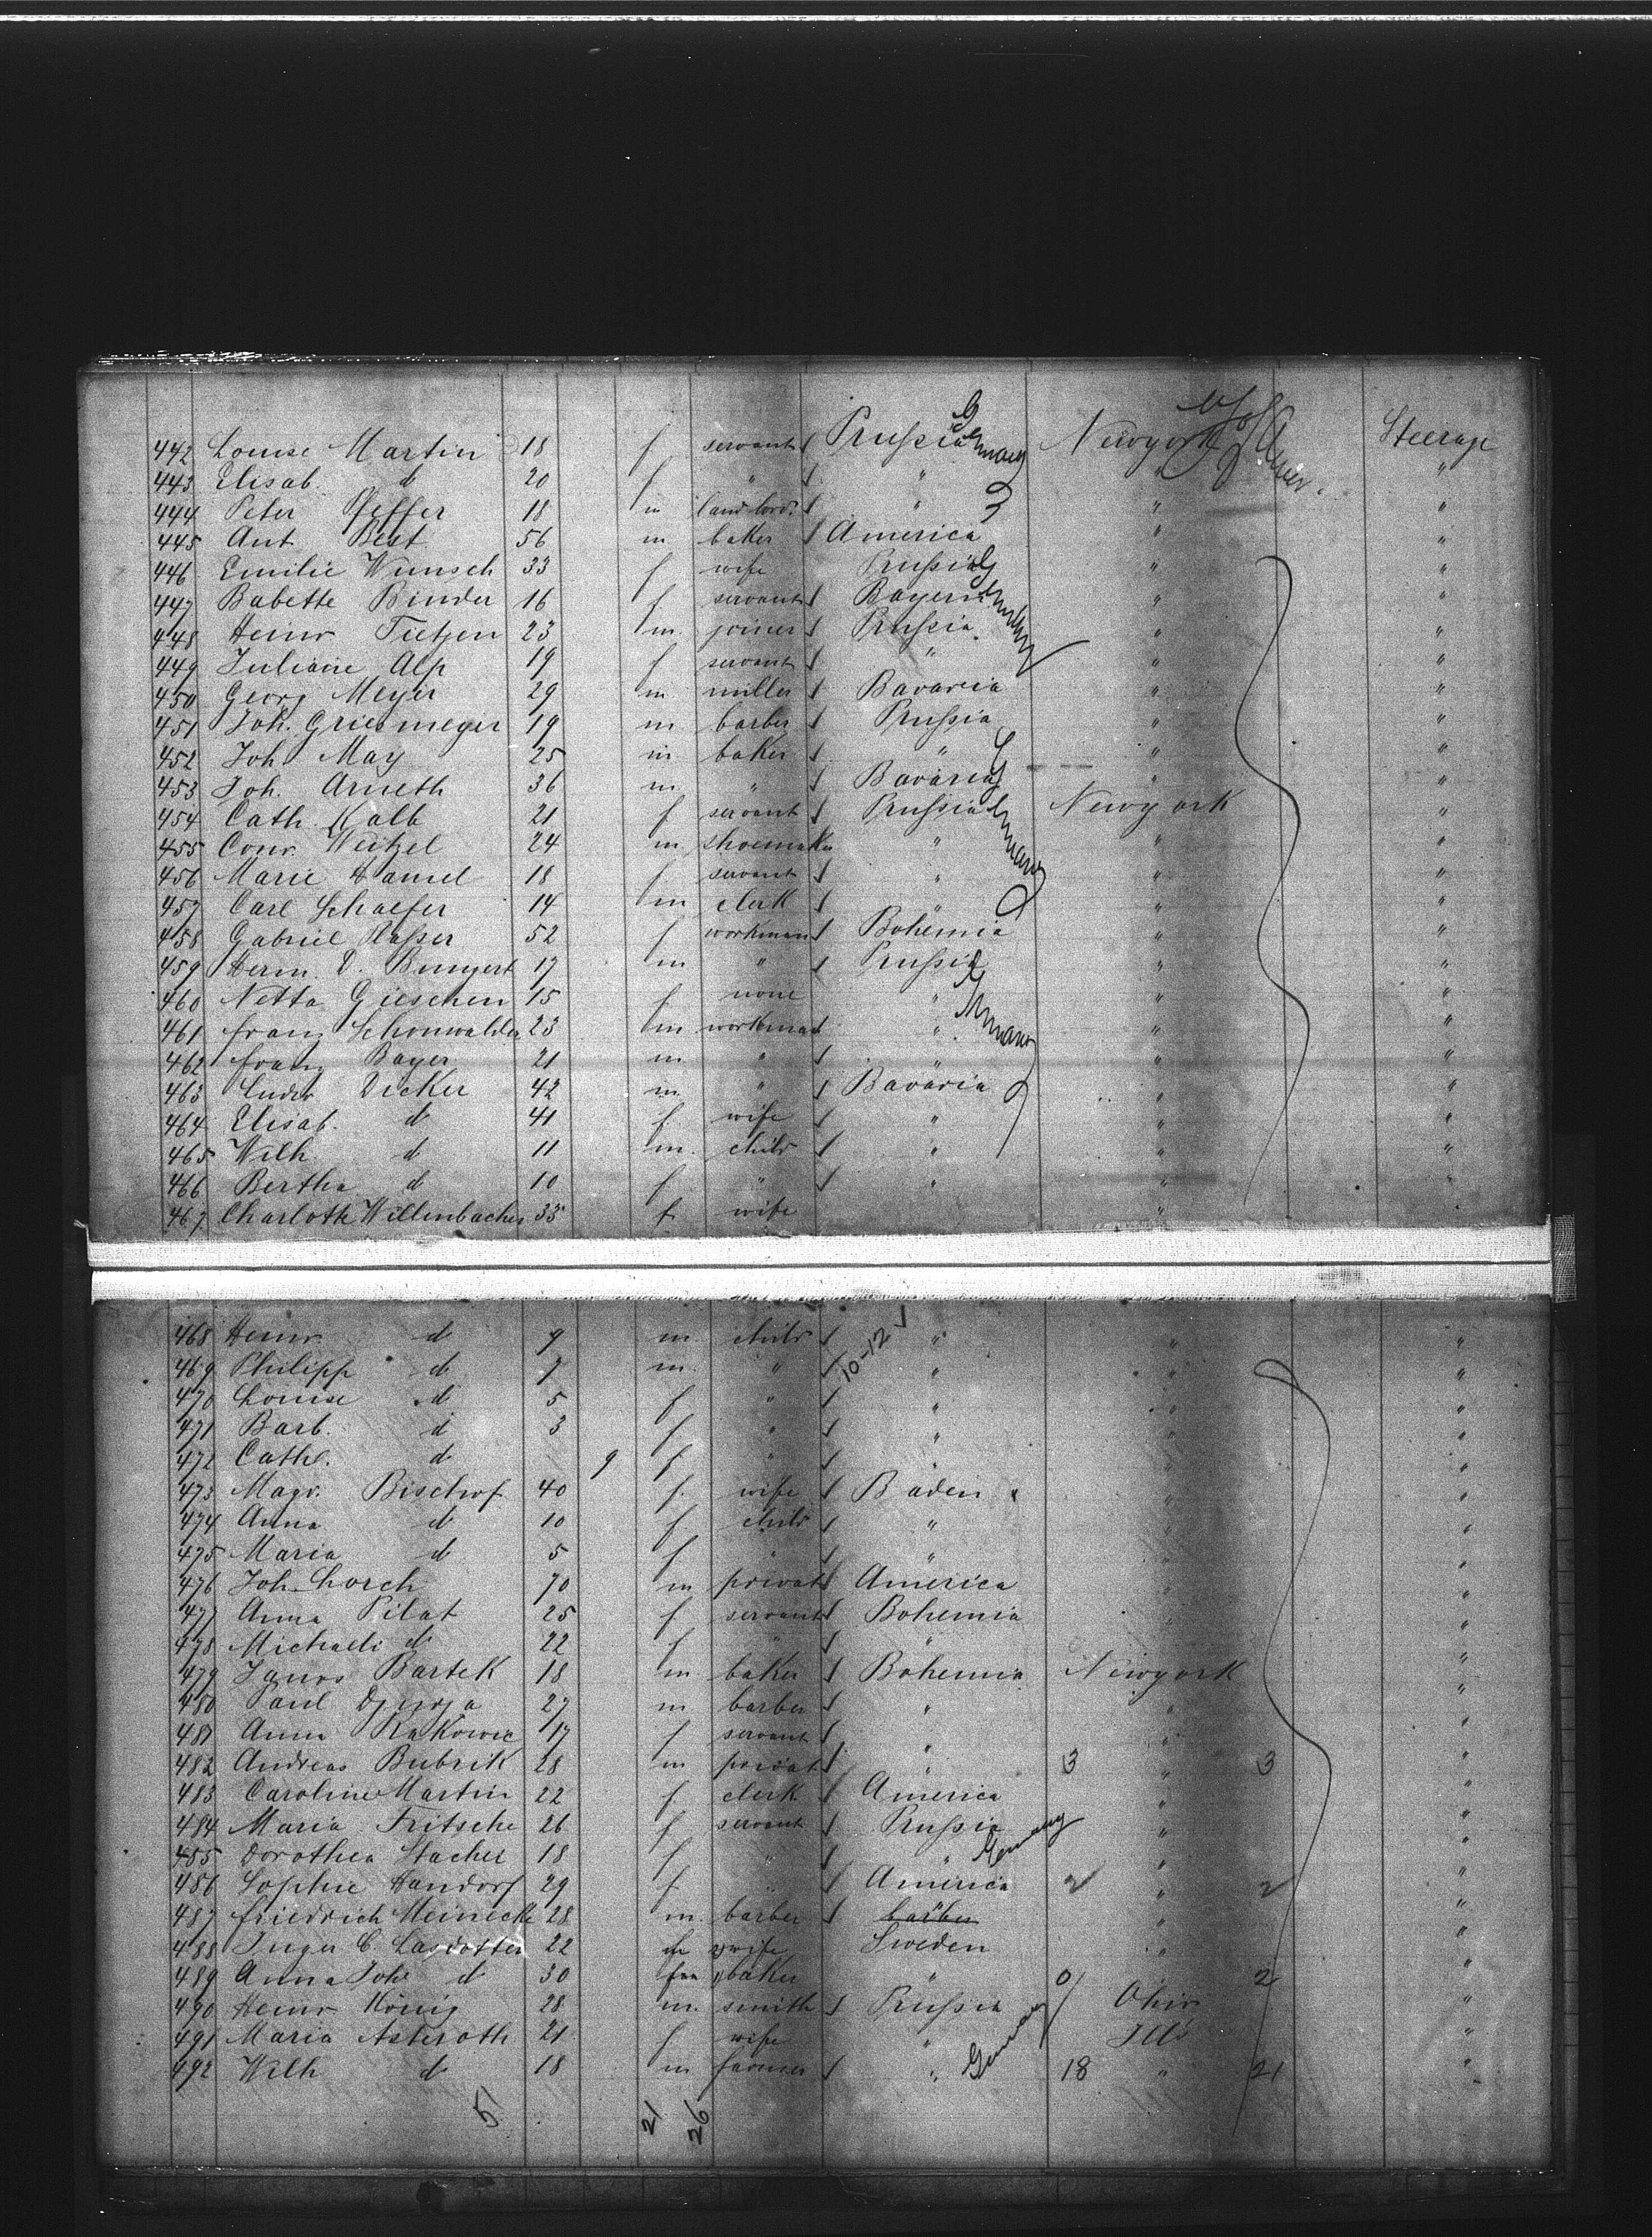 442 Louise Martin 18 f servant Prussia Germany Newyork Steerage
443 Elisab. d 20 f " " " "
444 Peter Pfeffer 18 m landlord " " "
445 Ant Best 56 m baker America " "
446 Emilie Wunsch 33 f wife Prussia " "
447 Babette Binder 16 f servant Bayern Germany " "
448 Heinr Tietjen 23 m. joiner Prussia " "
449 Juliane Alp 19 f servant " " "
450 Georg Meyer 29 m miller Bavaria " "
451 Joh. Griesmeyer 19 m barber Prussia " "
452 Joh May 25 m baker " " "
453 Joh. Arneth 36 m " Bavaria " "
454 Cath. Kalb 21 f servant Prussia Germany Newyork "
455 Conr. Weitzel 24 m shoemaker " " "
456 Marie Hamel 18 f servant " " "
457 Carl Schaefer 14 m clerk " " "
458 Gabriel 52 f workman Bohemia " "
459 Herm. D. Bungert 17 m " Prussia " "
460 Netta Gieschen 15 f none " Germany " "
461 Franz Schonwalder 23 m workman " " "
462 Franz Bayer 21 m " " " "
463 Ludw Decker 42 m " Bavaria " "
464 Elisab. d 41 f wife " " "
465 Wilh d 11 m. child " " "
466 Bertha d 10 f " " " "
467 Charloth Willenbacher 35 f wife "
468 Heinr d 9 m. child 10-12 " " "
469 Philipp d 7 m. " " " "
470 Louise d 5 f " " " "
471 Barb. d 3 f " " " "
472 Cath. d 9 f " " " "
473 Magr. Bischof 40 f. wife Baden " "
474 Anna d 10 f child " " "
475 Maria d 5 f " " " "
476 Joh. Lorch 70 m privat America " "
477 Anna Pilat 25 f servant Bohemia " "
478 Michaeli d 22 f " " "
479 Janos Bartek 18 m baker Bohemia Newyork "
480 Paul 27 m barber " " "
481 Anna Rakowic 17 f servant " " "
482 Andreas Bubrik 28 m privat " 3 " 3 "
483 Caroline Martin 22 f clerk America " "
484 Maria Fritsche 26 f servant Prussia " "
485 Dorothea Stacher 18 f " " Germany " "
486 Sophie Handorf 29 f " America 2 " 2 "
487 Friedrich Meinecke 28 m. barber barber " "
488 Inger C. Lasdotter 22 wife Sweden " "
489 Anna Joh d 30 baker " 0 2 "
490 Heinr König 28 m. smith Prussia Ohio "
491 Maria Asteroth 21 f wife " Ills "
492 Wilh d 18 m farmer " Germany 18 " 21 "
51 21 26